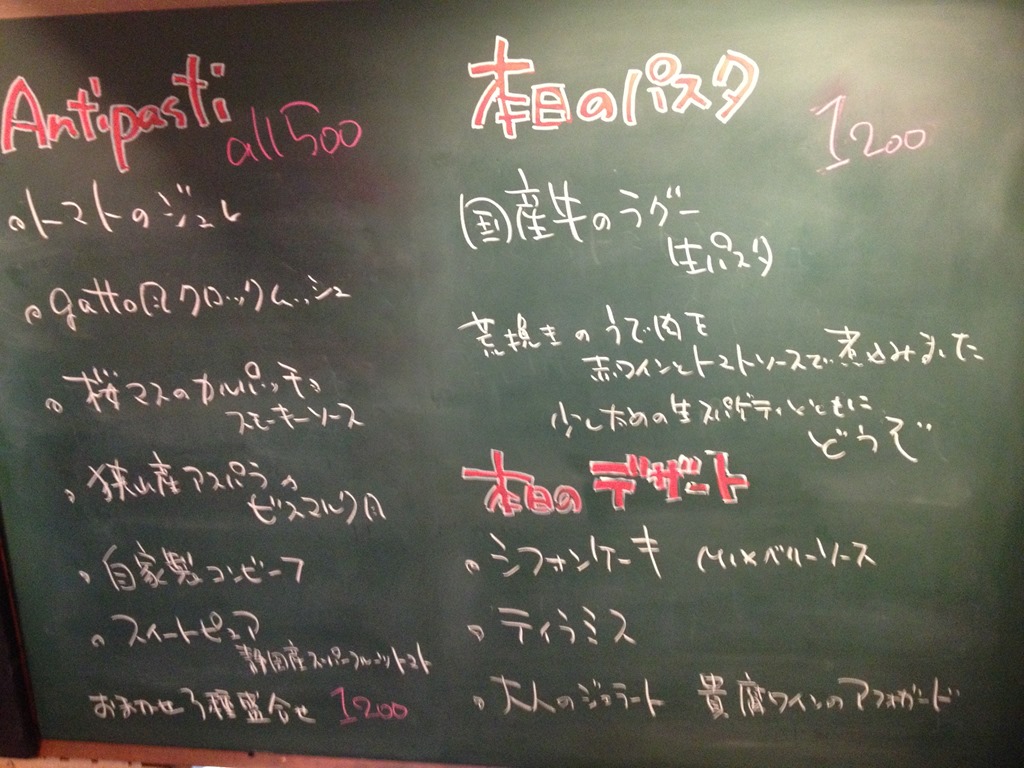 Antipasti all 500
・トマトのジュレ
・gatto風クロックムッシュ
・桜マスのカルパッチョ
スモーキーソース
・狭山産アスパラの
ビスマルク風
・自家製コンビーフ
・スイートピュア
静岡産スーパーフルーツトマト
おまかせ3種盛合せ 1200
本日のパスタ 1200
国産牛のラグー
生パスタ
荒挽きのうで肉を
赤ワインとトマトソースで煮込みました
少し太めの生スパゲティとともに
どうぞ
本日のデザート
・シフォンケーキ MIXベリーソース
・ティラミス
・大人のジェラート 貴腐ワインのアフォガード